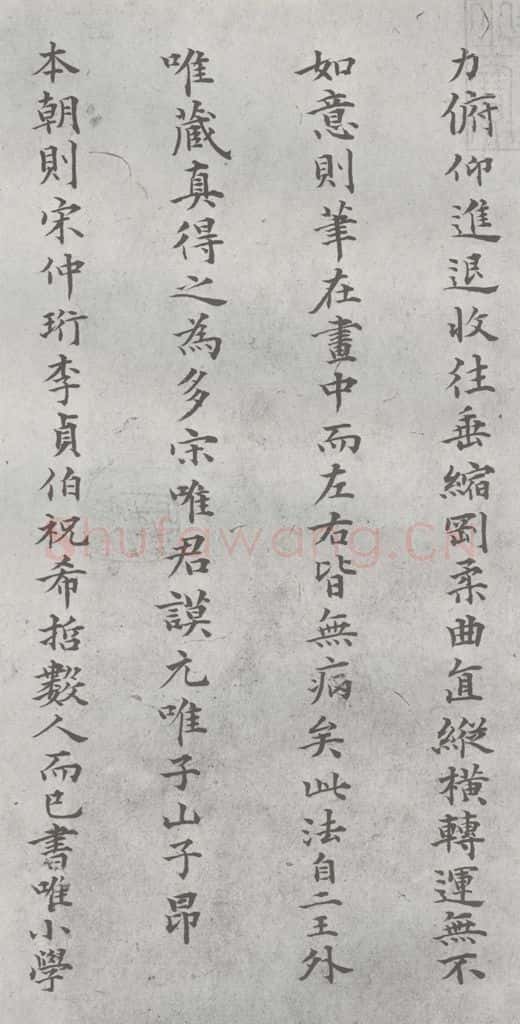 力俯仰進退收往垂縮剛柔曲直縱橫轉運無不
如意則筆在畫中而左右皆無病矣此法自二王外
唯藏真得之為多宋唯君謨元唯子山子昂
本朝則宋仲珩李貞伯祝希哲數人而已書唯小學
Shufawang.CN